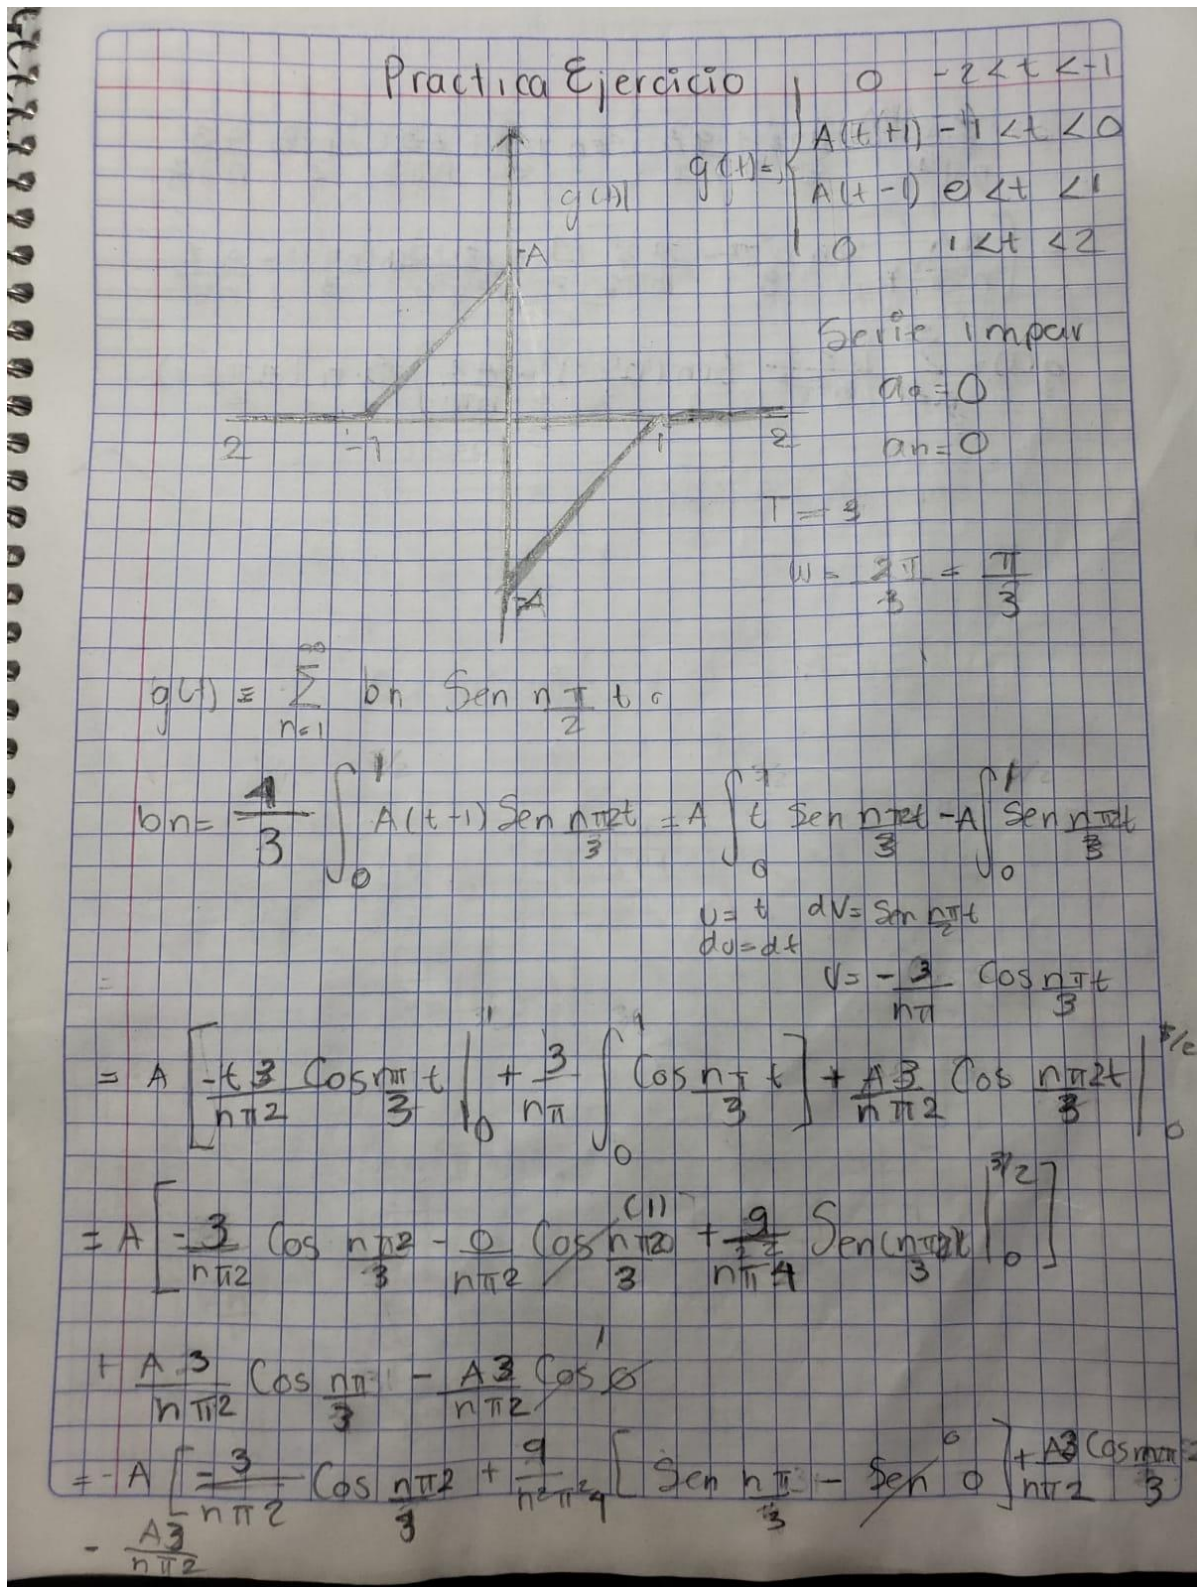 Practica Ejercicio
g(t)= { 0 -2<t<-1
A(t+1) -1<t<0
A(t-1) 0<t<1
0 1<t<2
g(t)
A
2 -1 1 2
-A
Serie Impar
ao=0
an=0
T=3
W= 2π/3 = π/3
g(t) = Σ n=1 ∞ bn Sen nπ/2 t
bn= 4/3 ∫ 0 1 A(t-1) Sen nπ2t/3 = A ∫ 0 1 t Sen nπ2t/3 -A ∫ 0 1 Sen nπ2t/3
u= t dv= Sen nπ/2 t
du=dt
v= -3/nπ Cos nπt/3
= A [ -t3/nπ2 Cos nπ/3 t | 0 1 + 3/nπ ∫ 0 1 Cos nπ/3 t ] + A3/nπ2 Cos nπ2t/3 | 0 3/2
= A [ -3/nπ2 Cos nπ2/3 - 0/nπ2 Cos nπ20/3 (1) + 9/n²π²4 Sen(nπ2)t/3 | 0 3/2 ]
+ A3/nπ2 Cos nπ/3 - A3/nπ2 Cos 0 1
= -A [ -3/nπ2 Cos nπ2/3 + 9/n²π²4 [ Sen nπ/3 - Sen 0 0 ] + A3/nπ2 Cos nπ2/3
- A3/nπ2